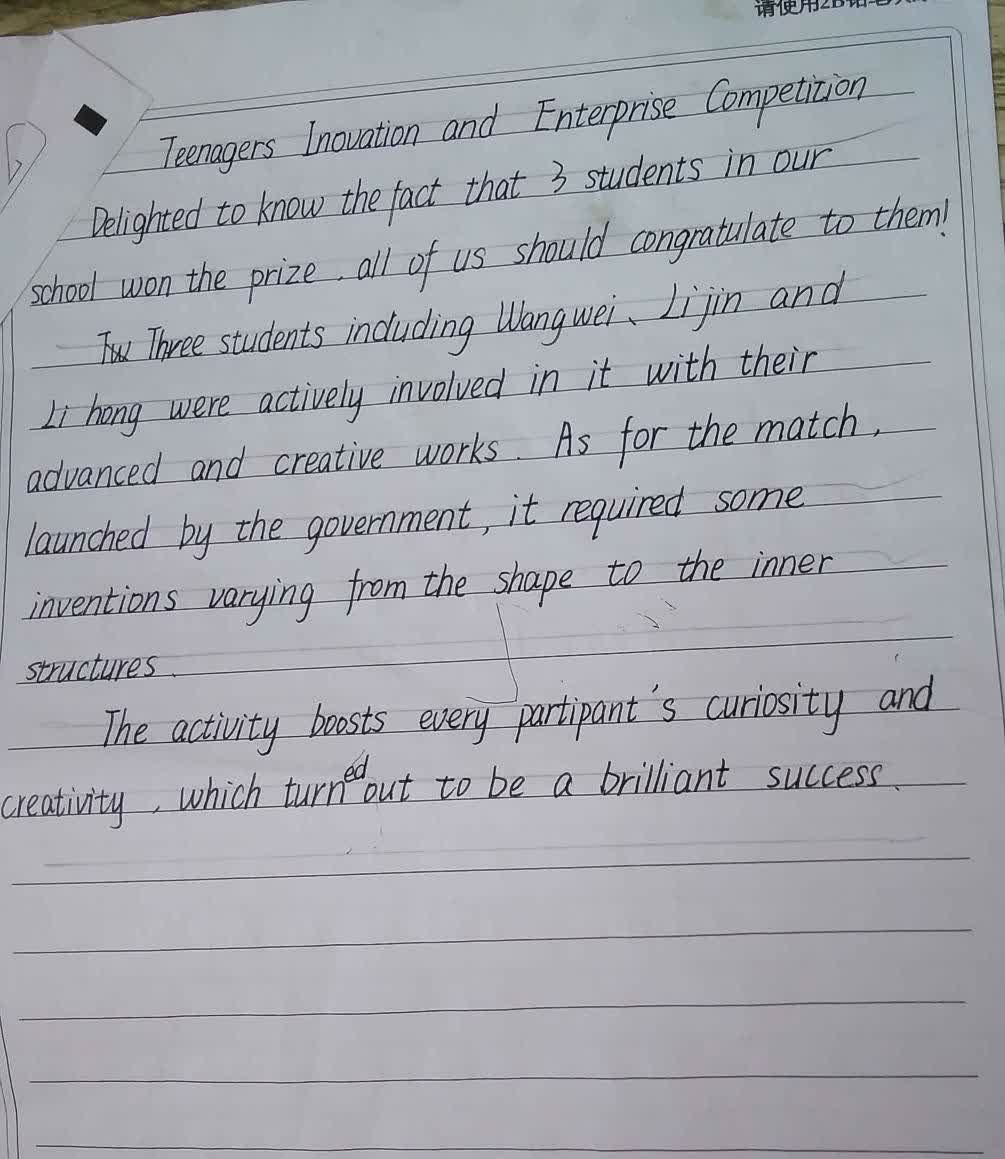 请使用2B铅笔
Teenagers Inovation and Enterprise Competition
Delighted to know the fact that 3 students in our
school won the prize, all of us should congratulate to them!
Three students including Wangwei、Lijin and
Li hong were actively involved in it with their
advanced and creative works. As for the match,
launched by the government, it required some
inventions varying from the shape to the inner
structures.
The activity boosts every partipant's curiosity and
creativity, which turned out to be a brilliant success.